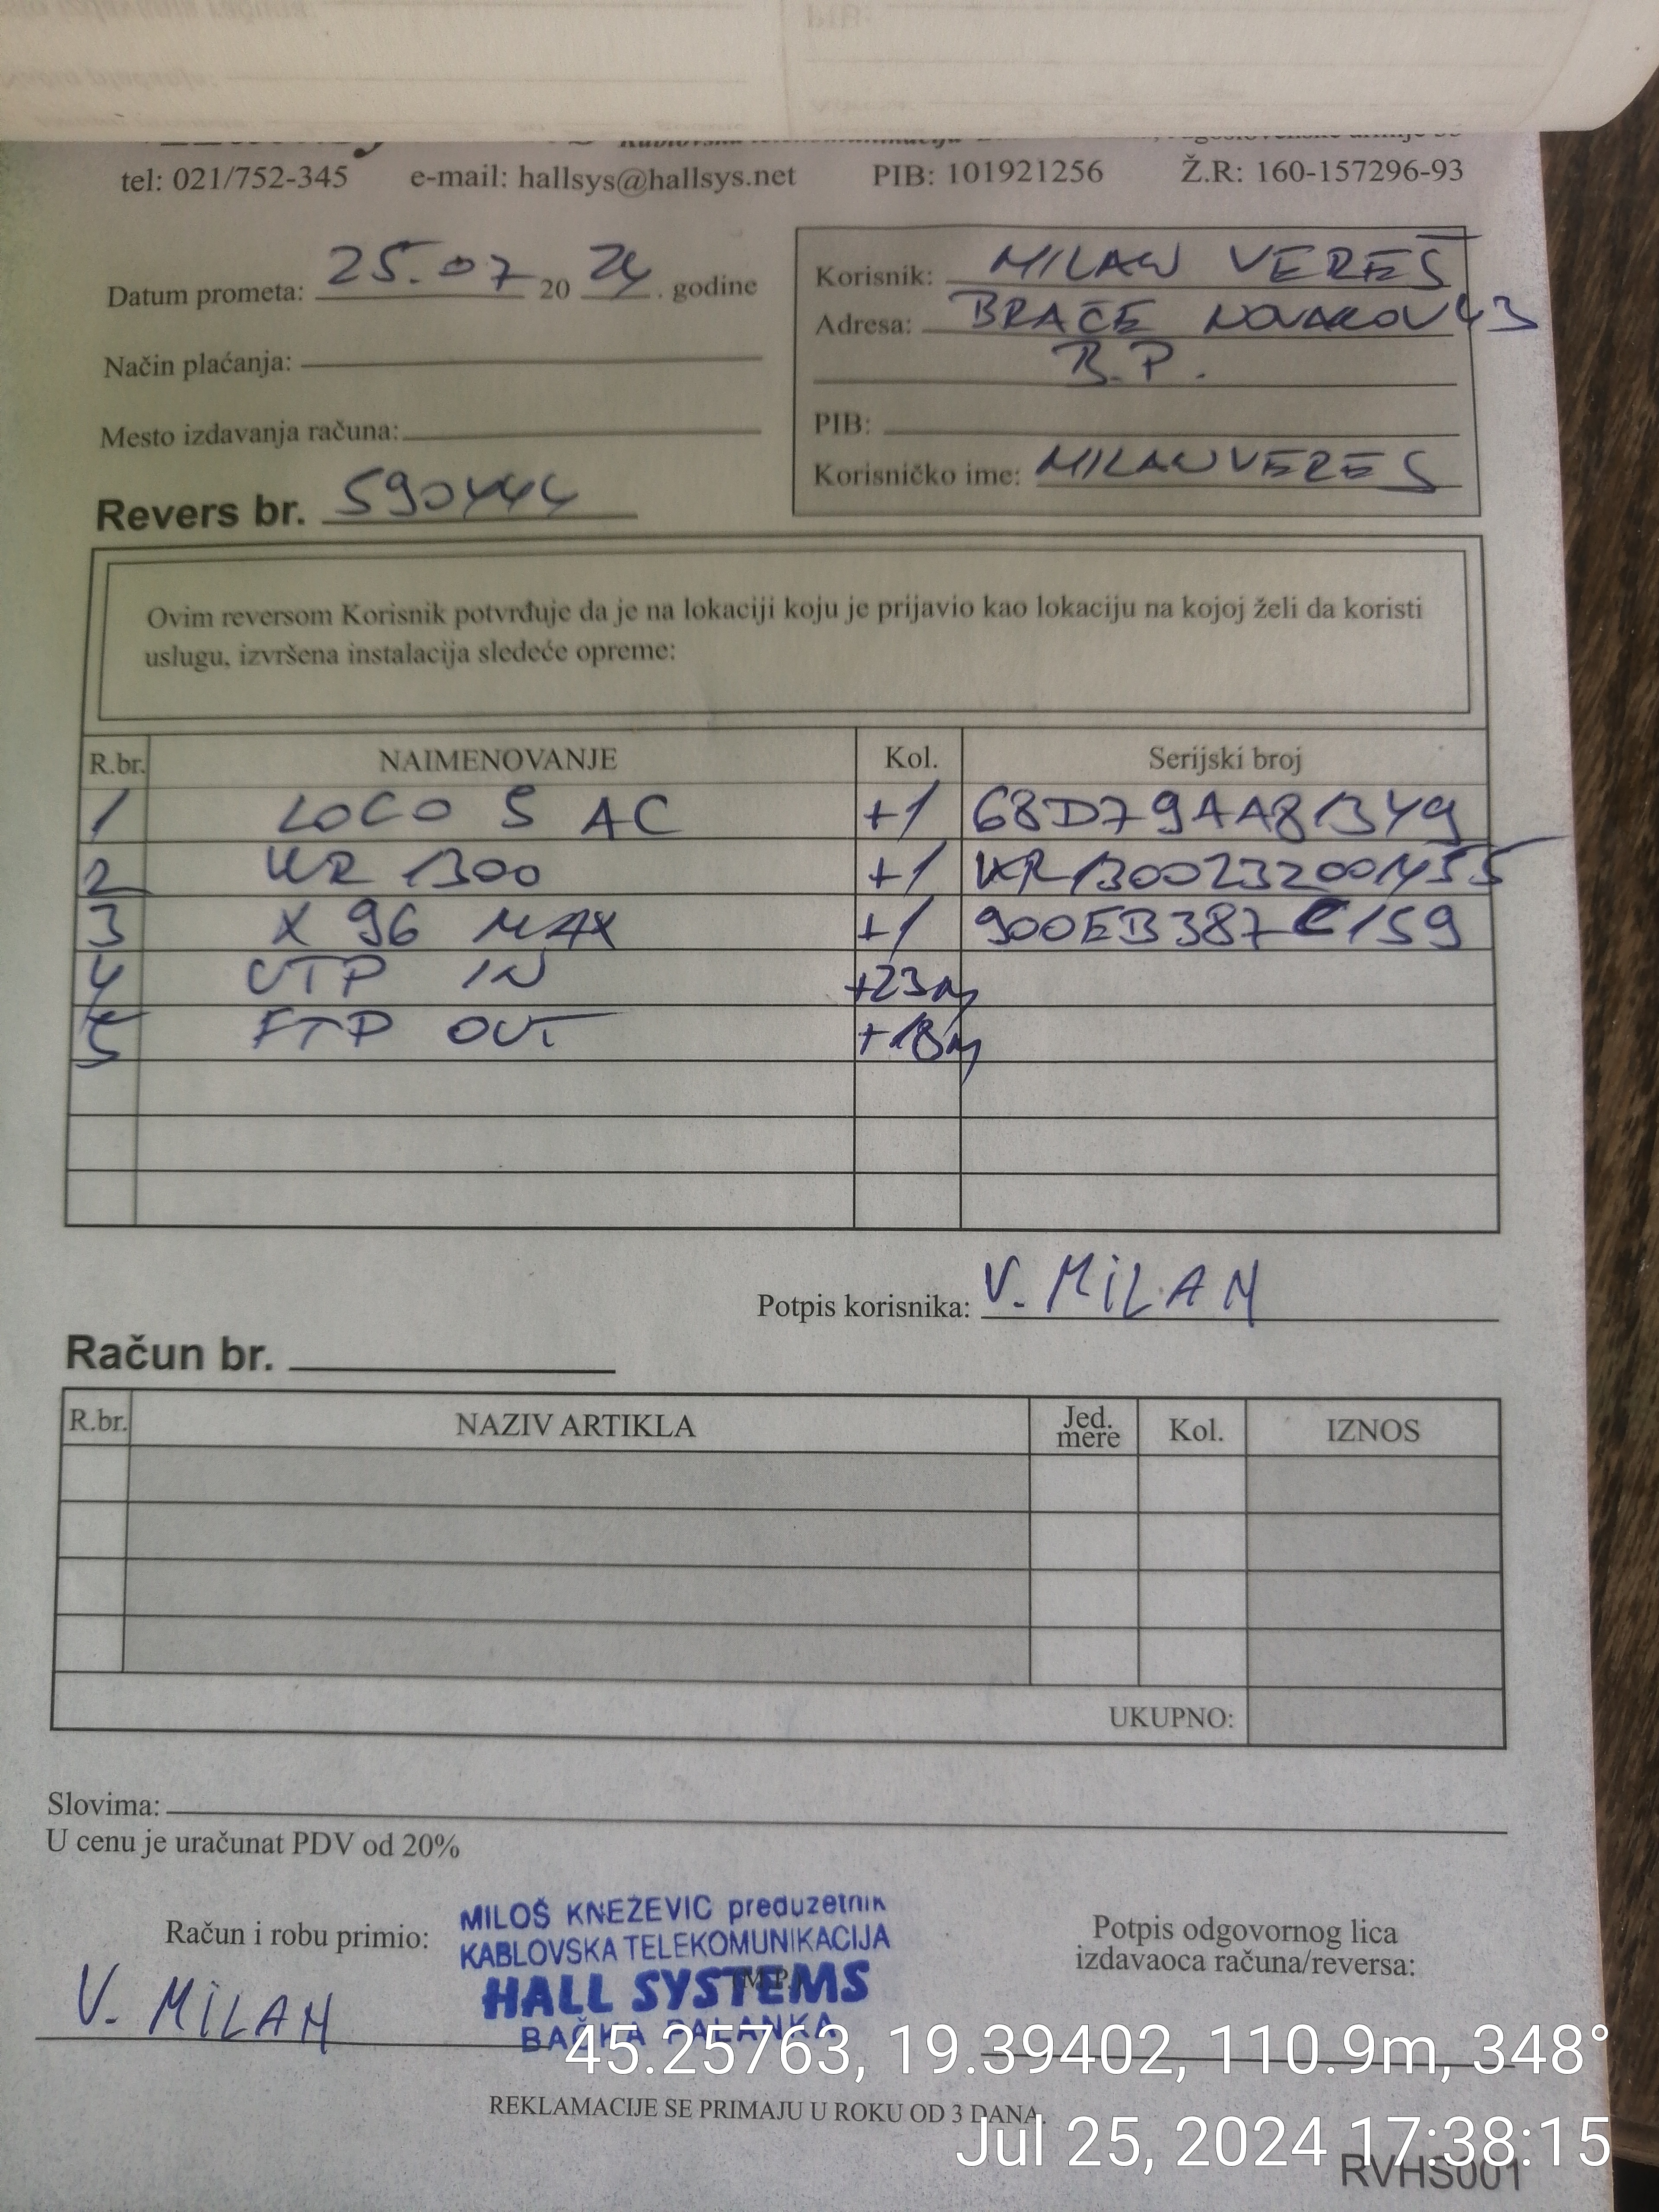 tel: 021/752-345 e-mail: hallsys@hallsys.net PIB: 101921256 Ž.R: 160-157296-93
Datum prometa: 25.07 20 24. godine
Korisnik: MILAN VEREŠ
Adresa: BRAĆE NOVAKOV 43
B.P.
Način plaćanja:
Mesto izdavanja računa:
PIB:
Korisničko ime: MILANVERES
Revers br. 590444
Ovim reversom Korisnik potvrđuje da je na lokaciji koju je prijavio kao lokaciju na kojoj želi da koristi
uslugu, izvršena instalacija sledeće opreme:
R.br. NAIMENOVANJE Kol. Serijski broj
1 LOCO 5 AC +1 68D79AA81349
2 KR 1300 +1 KR1300232001455
3 X 96 MAX +1 900EB387C159
4 UTP IN +23m
5 FTP OUT +18m
Potpis korisnika: V. MiLAN
Račun br.
R.br. NAZIV ARTIKLA Jed. mere Kol. IZNOS
UKUPNO:
Slovima:
U cenu je uračunat PDV od 20%
Račun i robu primio:
V. MiLAN
MILOŠ KNEŽEVIC preduzetnik
KABLOVSKA TELEKOMUNIKACIJA
HALL SYSTEMS
BAČKA PALANKA
(M.P.)
Potpis odgovornog lica
izdavaoca računa/reversa:
45.25763, 19.39402, 110.9m, 348°
REKLAMACIJE SE PRIMAJU U ROKU OD 3 DANA.
Jul 25, 2024 17:38:15
RVHS001